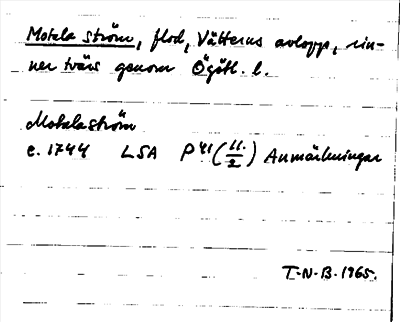 Motala ström, flod, Vätterns avlopp, rin-
ner tvärs genom Ögötl. l.
Motalaström
c. 1744 LSA P 41 (11./2) Anmärkningar
T-N-B. 1965.